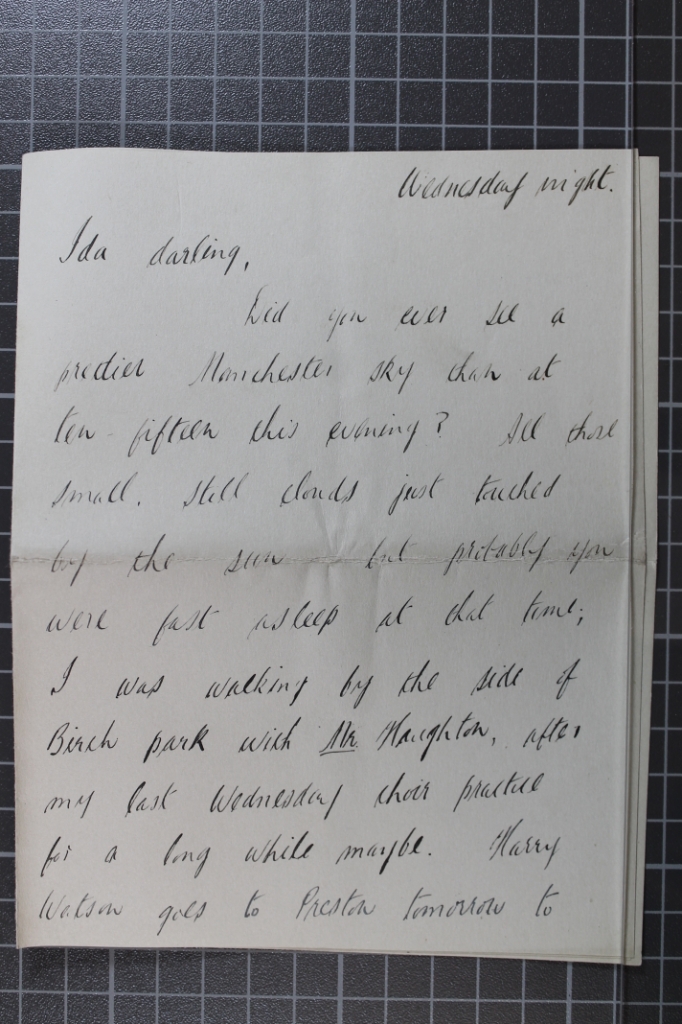 Wednesday night.
Ida darling,
Did you ever see a
prettier Manchester sky than at
ten-fifteen this evening? All those
small, still clouds just touched
by the sun — but probably you
were fast asleep at that time;
I was walking by the side of
Birch park with Mr. Haughton, after
my last Wednesday choir practice
for a long while maybe. Harry
Watson goes to Preston tomorrow to